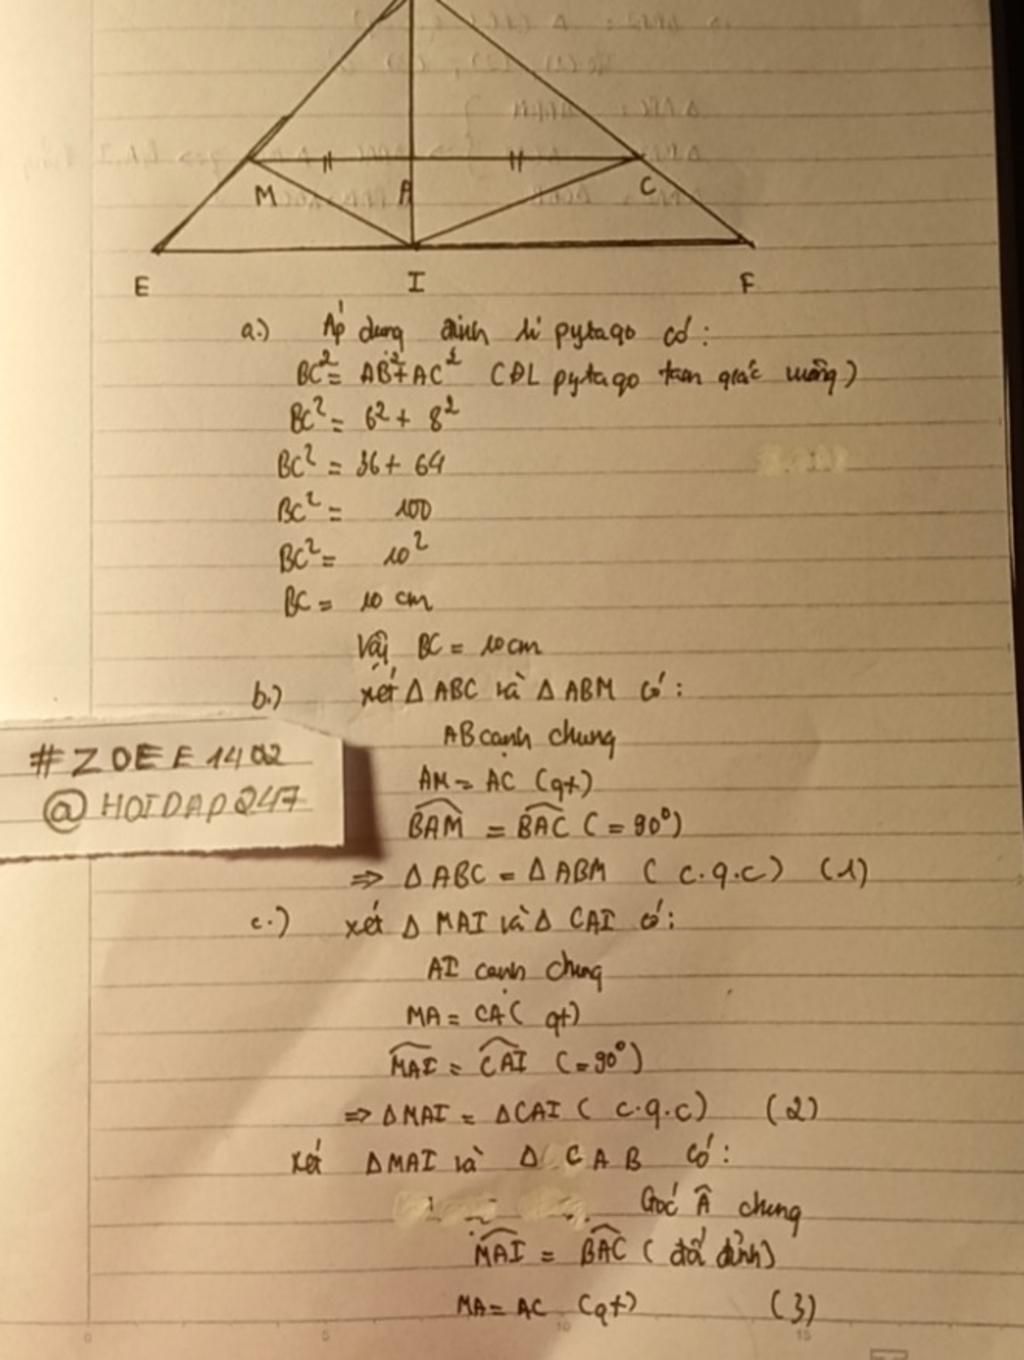 M A C
E I F
a.) Áp dụng định lí pytago có:
BC² = AB² + AC² (ĐL pytago tam giác vuông)
BC² = 6² + 8²
BC² = 36 + 64
BC² = 100
BC² = 10²
BC = 10 cm
Vậy BC = 10cm
b.) xét Δ ABC và Δ ABM có:
AB cạnh chung
AM = AC (gt)
\widehat{BAM} = \widehat{BAC} (= 90°)
⇒ Δ ABC = Δ ABM ( c.g.c) (1)
#ZOEE1402
@HOIDAP247
c.) xét Δ MAI và Δ CAI có:
AI cạnh chung
MA = CA ( gt)
\widehat{MAI} = \widehat{CAI} (= 90°)
⇒ ΔMAI = ΔCAI ( c.g.c) (2)
xét ΔMAI và Δ CAB có:
Góc Â chung
\widehat{MAI} = \widehat{BAC} ( đối đỉnh)
MA = AC (gt) (3)
0 5 10 15